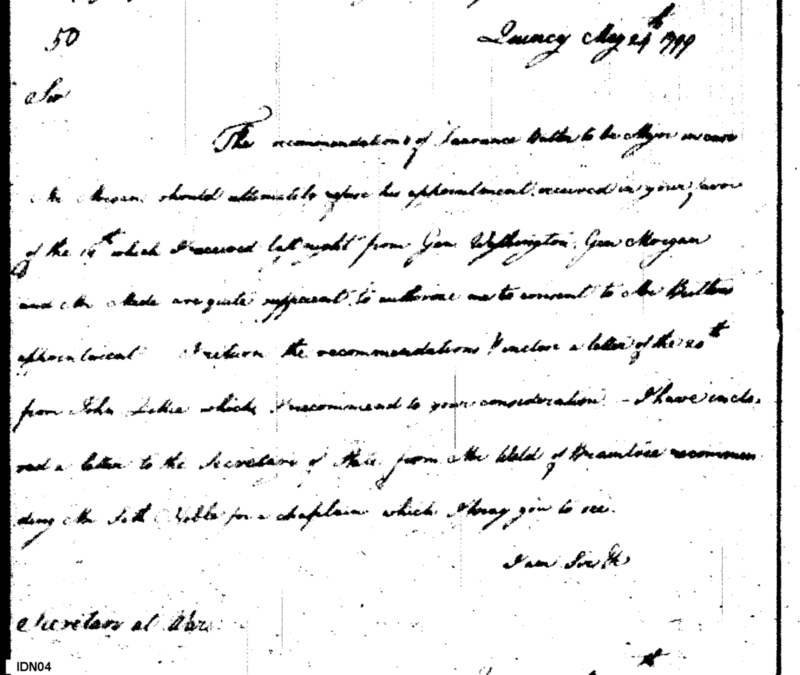 50
Quincy May 24th 1799
Sir
The recommendations of Laurance Butler to be Major in case
Mr should ultimately refuse his appointment received in your favor
of the 14th which I received last night from Gen Washington, Gen Morgan
and Mr Meade are quite sufficient to authorise me to consent to Mr Butlers
appointment I return the recommendations & inclose a letter of the 20th
from John which I recommend to your consideration - I have inclo-
sed a letter to the Secretary of State from Mr Weld of Braintree recommen
ding Mr Seth Noble for a chaplain which I pray you to see.
I am Sir &c
Secretary at War
th
IDN04